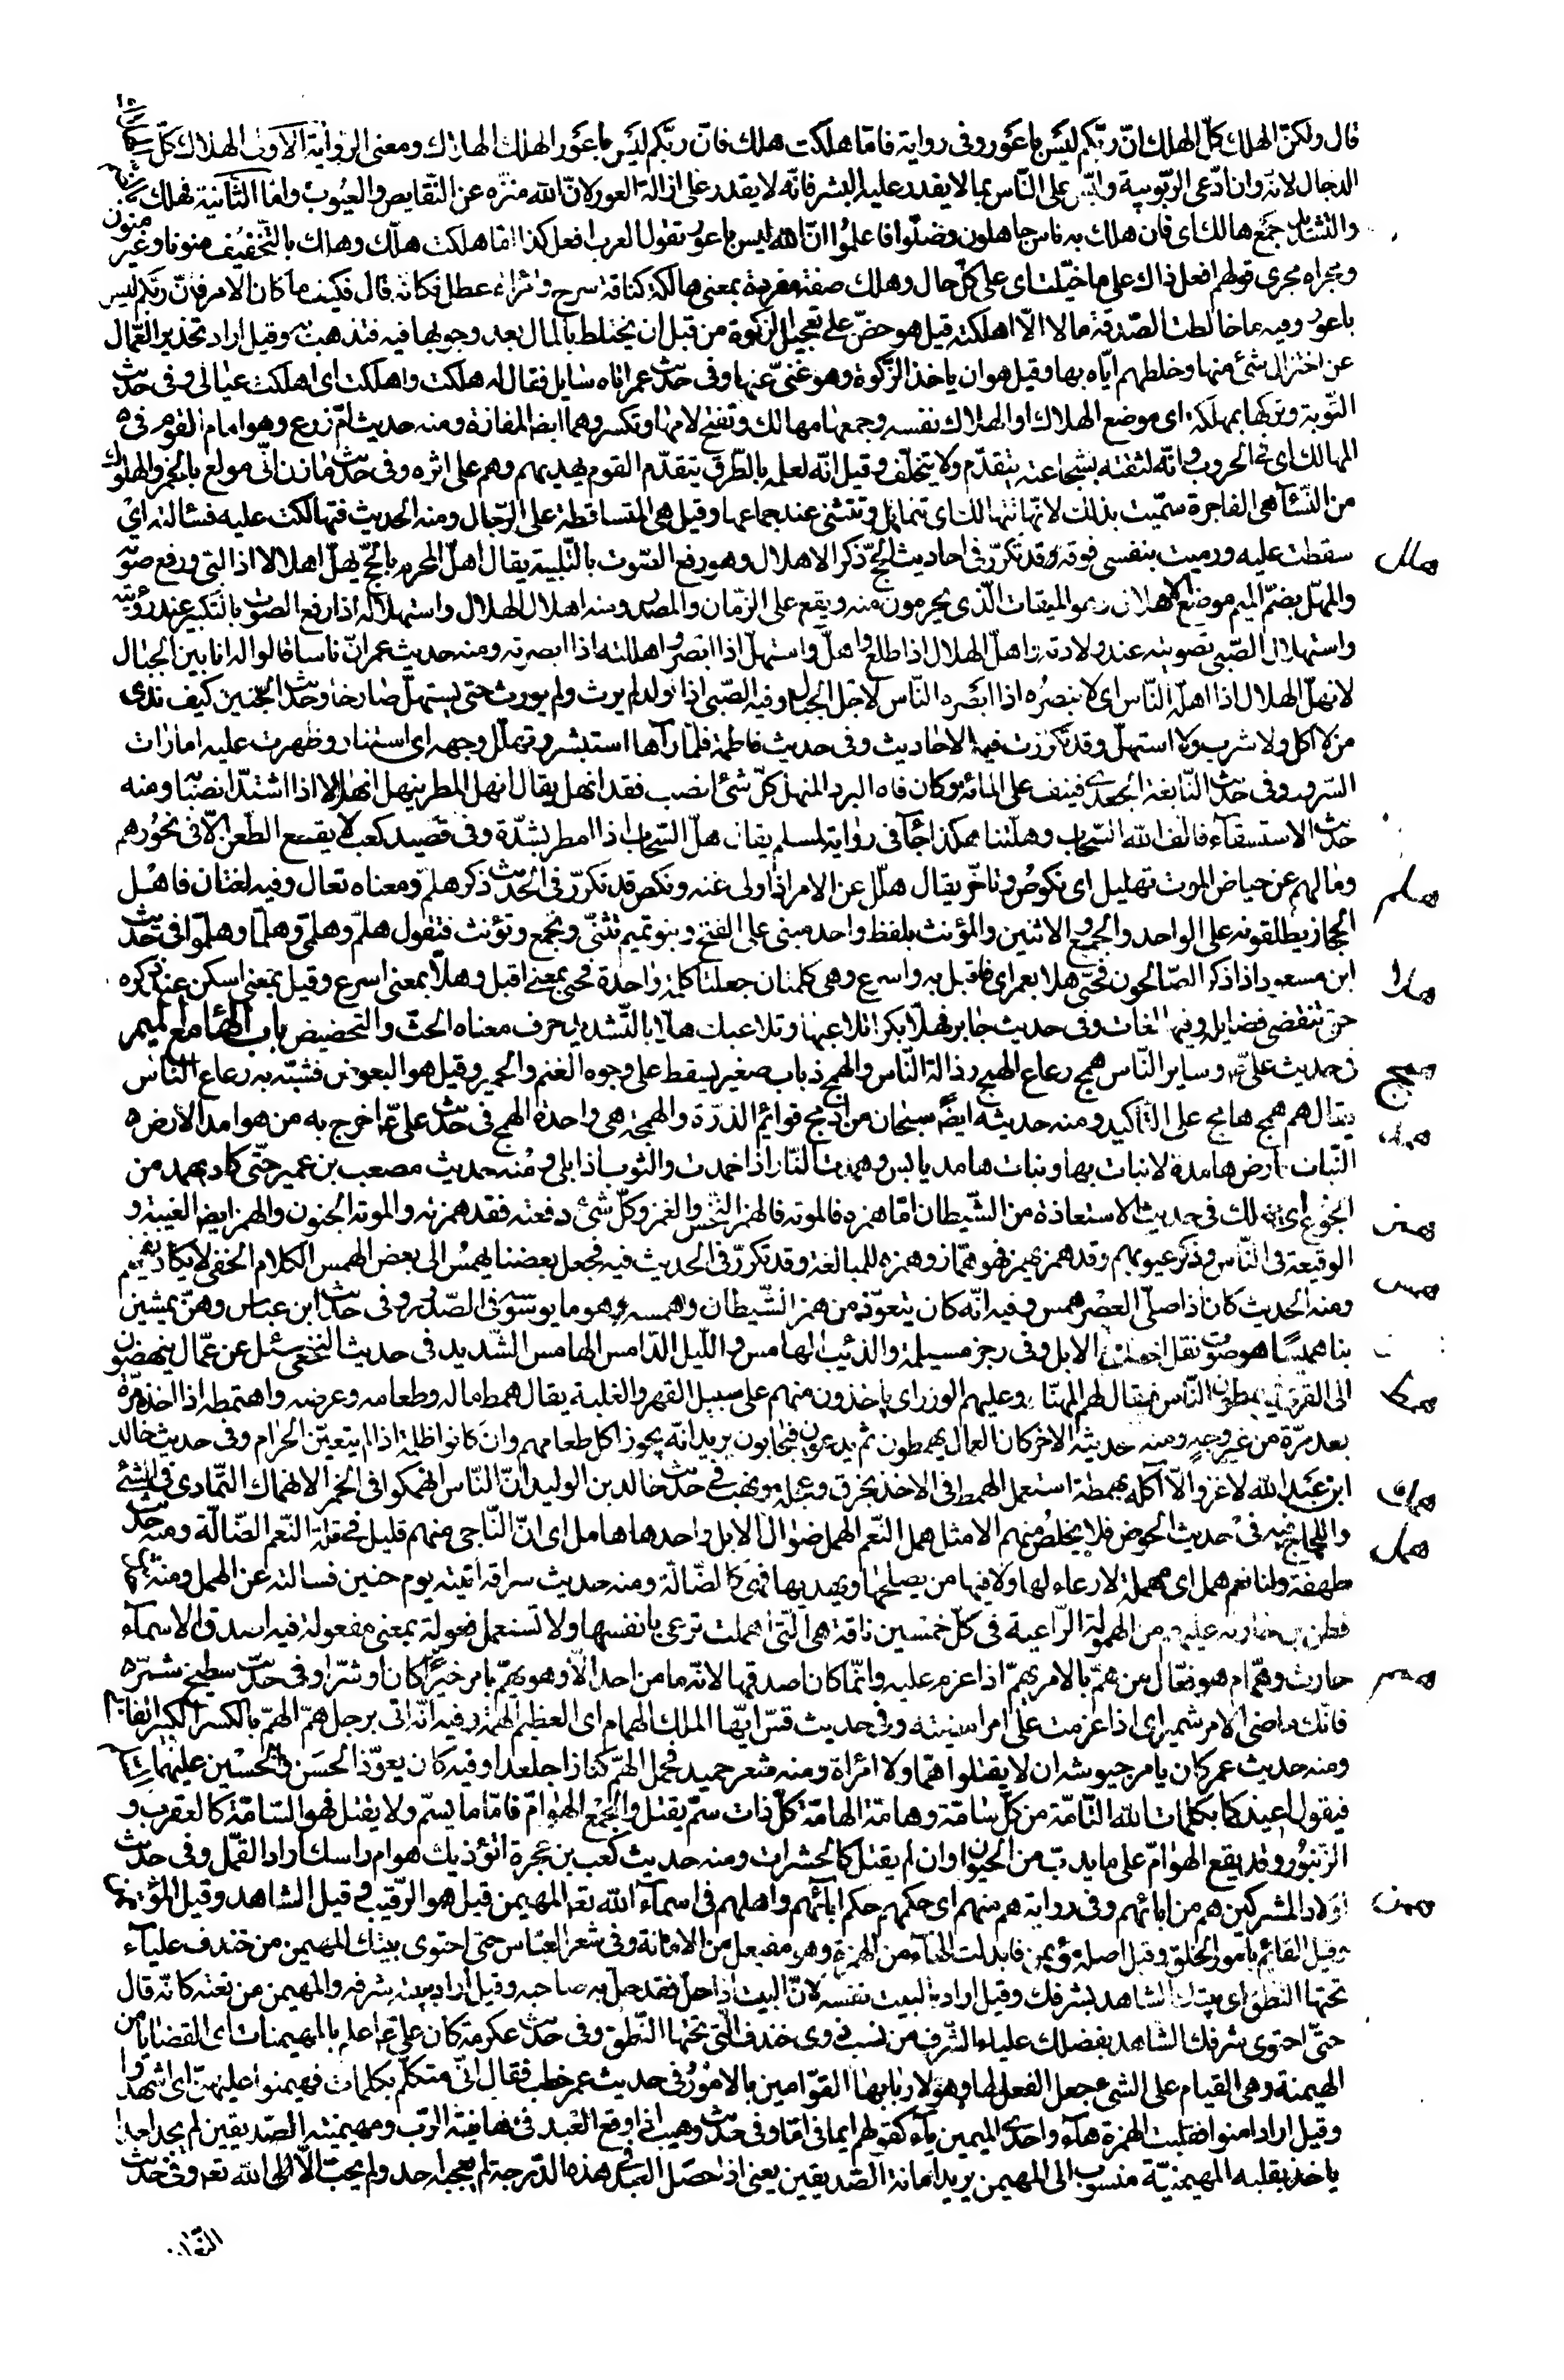 قال ولكنّ الهلك كلّ الهلك انّ ربّكم ليس باعور وفى رواية فامّا هلكت هلك فانّ ربّكم ليس باعور الهلك الهلاك ومعنى الرواية الاولى الهلاك كلّ
الدجال لانّه وان ادّعى الرّبوبية ولبّس على النّاس بما لا يقدر عليه البشر فانّه لا يقدر على ازالة العور لانّ الله منزّه عن النّقايص والعيوب وامّا الثّانية فهلك
والتشديد جمع هالك اى فان هلك به ناس جاهلون وضلّوا فاعلموا انّ الله ليس باعور تقول العرب افعل كذا امّا هلكت هلّك وهلك بالتخفيف منونا وغير منون
ومجراه مجرى قولهم افعل ذاك على ما خيّلت اى على كلّ حال وهلك صفة مفردة بمعنى هالكة كناقة سرح وامرأة عطل فكانّه قال فكيف ما كان الامر فانّ ربّكم ليس
باعور وفيه ما خالطت الصّدقة مالا الّا اهلكته قيل هو حضّ على تعجيل الزكوة من قبل ان يختلط بالمال بعد وجوبها فيه فتذهب به وقيل اراد تحذير العمّال
عن اختزال شئ منها وخلطهم ايّاه بها وقيل هو ان ياخذ الزّكوة وهو غنىّ عنها وفى حديث عمر اتاه سايل فقال له هلكت واهلكت اى اهلكت عيالى وفى حديث
التّوبة وتركها بمهلكة اى موضع الهلاك او الهلاك نفسه وجمعها مهالك وتفتح لامها وتكسر وهما ايضا المفازة ومنه حديث امّ زرع وهو امام القوم فى
المهالك اى فى الحروب وانّه لثقته بشجاعته يتقدّم ولا يتخلّف وقيل انّه لعلمه بالطّرق يتقدّم القوم يهديهم وهم على اثره وفى حديث مازن انّى مولع بالخمر والهلوك
من النّساء هى الفاجرة سمّيت بذلك لانّها تتهالك اى تتمايل وتتثنى عند جماعها وقيل هى المتساقطة على الرّجال ومنه الحديث فتهالكت عليه فسألته اى
هلل سقطت عليه ورميت بنفسى فوقه وقد تكرّر فى احاديث الحجّ ذكر الاهلال وهو رفع الصّوت بالتّلبية يقال اهلّ المحرم بالحجّ يهلّ اهلالا اذا لبّى ورفع صوته
والمهلّ بضمّ الميم موضع الاهلال وهو الميقات الّذى يحرمون منه ويقع على الزّمان والمصدر ومنه اهلال الهلال واستهلاله اذا رفع الصوت بالتكبير عند رؤيته
واستهلال الصّبى تصويته عند ولادته واهلّ الهلال اذا طلع واهلّ واستهلّ اذا ابصر واهللته اذا ابصرته ومنه حديث عمر انّ ناسا قالوا له انا بين الجبال
لا نهلّ الهلال اذا اهلّه النّاس اى لا نبصره اذا ابصره النّاس لاجل الجبال وفيه الصّبى اذا ولد لم يرث ولم يورث حتى يستهلّ صارخا وحديث الجنين كيف ندى
من لا اكل ولا شرب ولا استهلّ وقد تكررت فيهما الاحاديث وفى حديث فاطمة فلمّا رآها استبشر وتهلّل وجهه اى استنار وظهرت عليه امارات
السّرور وفى حديث النّابغة الجعدى فنيف على المائة وكان فاه البرد المنهلّ كلّ شئ انصب فقد انهلّ يقال انهل المطر ينهل انهلالا اذا اشتدّ انصبابه ومنه
حديث الاستسقاء فالف الله السّحاب وهلّتنا هكذا جاء فى رواية لمسلم يقال هلّ السّحاب اذا امطر بشدّة وفى قصيد كعب لا يقع الطّعن الّا فى نحورهم
هلم وما لهم عن حياض الموت تهليل اى نكوص وتاخر يقال هلّل عن الامر اذا ولى عنه ونكص قد تكرّر فى الحديث ذكر هلمّ ومعناه تعال وفيه لغتان فاهل
الحجاز يطلقونه على الواحد والجمع والاثنين والمؤنث بلفظ واحد مبنى على الفتح وبنو تميم تثنّى وتجمع وتؤنث فتقول هلمّ وهلمّى وهلمّا وهلمّوا فى حديث
هلا ابن مسعود اذا ذكر الصّالحون فحىّ هلا بعمر اى فاقبل به واسرع وهى كلمتان جعلتا كلمة واحدة فحىّ بمعنى اقبل وهلا بمعنى اسرع وقيل بمعنى اسكن عند ذكره
حتى تنقضى فضايله وفيها لغات وفى حديث جابر فهلّا بكرا تلاعبها وتلاعبك هلّا بالتّشديد حرف معناه الحثّ والتحضيض باب الهاء مع الميم
همج فى حديث علىّ وساير النّاس همج رعاع الهمج رذالة النّاس والهمج ذباب صغير يسقط على وجوه الغنم والحمير وقيل هو البعوض فشبّه به رعاع النّاس
همد يقال هم همج هامج على التّاكيد ومنه حديثه ايضا سبحان من ادمج قوائم الذرّة والهمجة هى واحدة الهمج فى حديث علىّ اخرج به من هوامد الارض
النّبات ارض هامدة لا نبات بها ونبات هامد يابس وهمدت النّار اذا خمدت والثوب اذا بلى ومنه حديث مصعب بن عمير حتّى كاد يهمد من
همز الجوع اى يهلك فى حديث الاستعاذة من الشّيطان امّا همزه فالموتة فالهمز النّخس والغمز وكلّ شئ دفعته فقد همزته والموتة الجنون والهمز ايضا الغيبة و
الوقيعة فى النّاس وذكر عيوبهم وقد همز يهمز فهو همّاز وهمزة للمبالغة وقد تكرّر فى الحديث فيه فجعل بعضنا يهمس الى بعض الهمس الكلام الخفى لا يكاد يفهم
همس ومنه الحديث كان اذا صلّى العصر همس وفيه انّه كان يتعوّذ من همز الشّيطان وهمسه وهو ما يوسوسه فى الصّدور وفى حديث ابن عباس وهنّ يمشين
بنا هميسا هو صوت نقل اخفاف الابل وفى رجز مسيلمة والذئب الهامس والليل الدّامس الهامس الشّديد فى حديث النخعى سئل عن عمّال ينهضون
همط الى القرى فيهمطون النّاس فقال لهم المهنّا وعليهم الوزر اى ياخذون منهم على سبيل القهر والغلبة يقال همط ماله وطعامه وعرضه واهتمطه اذا اخذه مرّة
بعد مرّة من غير وجه ومنه حديثه الاخر كان العمال يهمطون ثم يدعون فيجابون يريد انّه يجوز اكل طعامهم وان كانوا ظلمة اذا لم يتعيّن الحرام وفى حديث خالد
همك ابن عبد الله لا غزو الّا اكلة بهمطة استعمل الهمط فى الاخذ بخرق وعجلة ونهب فى حديث خالد بن الوليد انّ النّاس انهمكوا فى الخمر الانهماك التّمادى فى الشئ
همل واللجاج فيه فى حديث الحوض فلا يخلص منهم الا مثل همل النّعم الهمل ضوالّ الابل واحدها هامل اى انّ النّاجى منهم قليل فى قلّة النّعم الضّالّة ومنه حديث
طهفة ولنا نعم همل اى مهملة لا رعاء لها ولا فيها من يصلحها ويهديها فهى كالضّالّة ومنه حديث سراقة اتيته يوم حنين فسالته عن الهمل ومنه
قطن بن حارثة عليهم من الهمولة الرّاعية فى كلّ خمسين ناقة هى الّتى اهملت ترعى بانفسها ولا تستعمل فعولة بمعنى مفعولة فيه اصدق الاسماء
همم حارث وهمّام هو فعّال من همّ بالامر يهمّ اذا عزم عليه وانّما كان اصدقها لانّه ما من احد الّا وهو يهمّ بامر خيرا كان او شرّا وفى حديث سطيح شمّر
فانّك ماضى الامر شمير اى اذا عزمت على امر امضيته وفى حديث قسّ ايّها الملك الهمام اى العظيم الهمّة وفيه انّه اتى برجل همّ الهمّ بالكسر الكبير الفانى
ومنه حديث عمر كان يامر جيوشه ان لا يقتلوا همّا ولا امرأة ومنه شعر حميد فحمل الهمّ كنازا جلعدا وفيه كان يعوّذ الحسن والحسين عليهما
فيقول اعيذكما بكلمات الله التّامّة من كلّ سامّة وهامّة الهامّة كلّ ذات سمّ يقتل والجمع الهوامّ فامّا ما يسمّ ولا يقتل فهو السّامّة كالعقرب و
الزّنبور وقد يقع الهوامّ على ما يدبّ من الحيوان وان لم يقتل كالحشرات ومنه حديث كعب بن عجرة اتؤذيك هوام راسك اراد القمل وفى حديث
همن اولاد المشركين هم من ابائهم وفى رواية هم منهم اى حكمهم حكم ابائهم واهلهم فى اسماء الله تعالى المهيمن قيل هو الرّقيب وقيل الشاهد وقيل المؤتمن
وقيل القائم بامور الخلق وقيل اصله مؤيمن فابدلت الهاء من الهمزة وهو مفيعل من الامانة وفى شعر العبّاس حتى احتوى بيتك المهيمن من خندف علياء
تحتها النطق اى بيتك الشاهد بشرفك وقيل اراد بالبيت نفسه لانّ البيت اذا حلّ فقد حلّ به صاحبه وقيل اراد ببيته شرفه والمهيمن من نعته كانّه قال
حتّى احتوى شرفك الشاهد بفضلك علياء الشّرف من نسب ذوى خندف الّتى تحتها النّطق وفى حديث عكرمة كان علىّ اعلم بالمهيمنات اى القضايا من
الهيمنة وهى القيام على الشئ جعل الفعل لها وهو لاربابها القوّامين بالامور فى حديث عمر خطب فقال انّى متكلّم بكلمات فهيمنوا عليهنّ اى اشهدوا
وقيل اراد امنوا فقلبت الهمزة هاء واحدى الميمين ياء كقولهم ايما فى امّا وفى حديث وهيب اذا وقع العبد فى هانيّة الرّب ومهيمنيّة الصّديقين لم يجد احدا
ياخذ بقلبه المهيمنيّة منسوب الى المهيمن يريد امانة الصّديقين يعنى اذا حصل العبد فى هذه الدّرجة لم يعجبه احد ولم يحبّ الّا الله تعالى وفى حديث